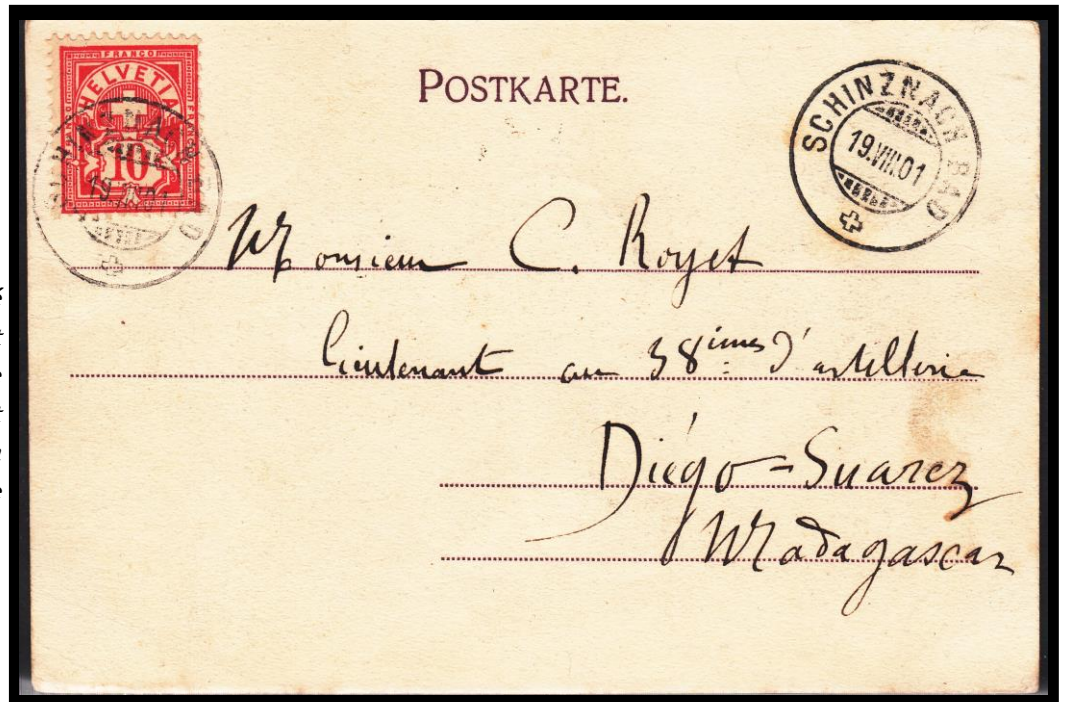 FRANCO
HELVETIA
10
POSTKARTE.
SCHINZNACH BAD
19.VIII.01
SCHINZNACH BAD
19.VIII.01
Monsieur C. Royet
lieutenant au 38ièmes d'artillerie
Diégo-Suarez
Madagascar